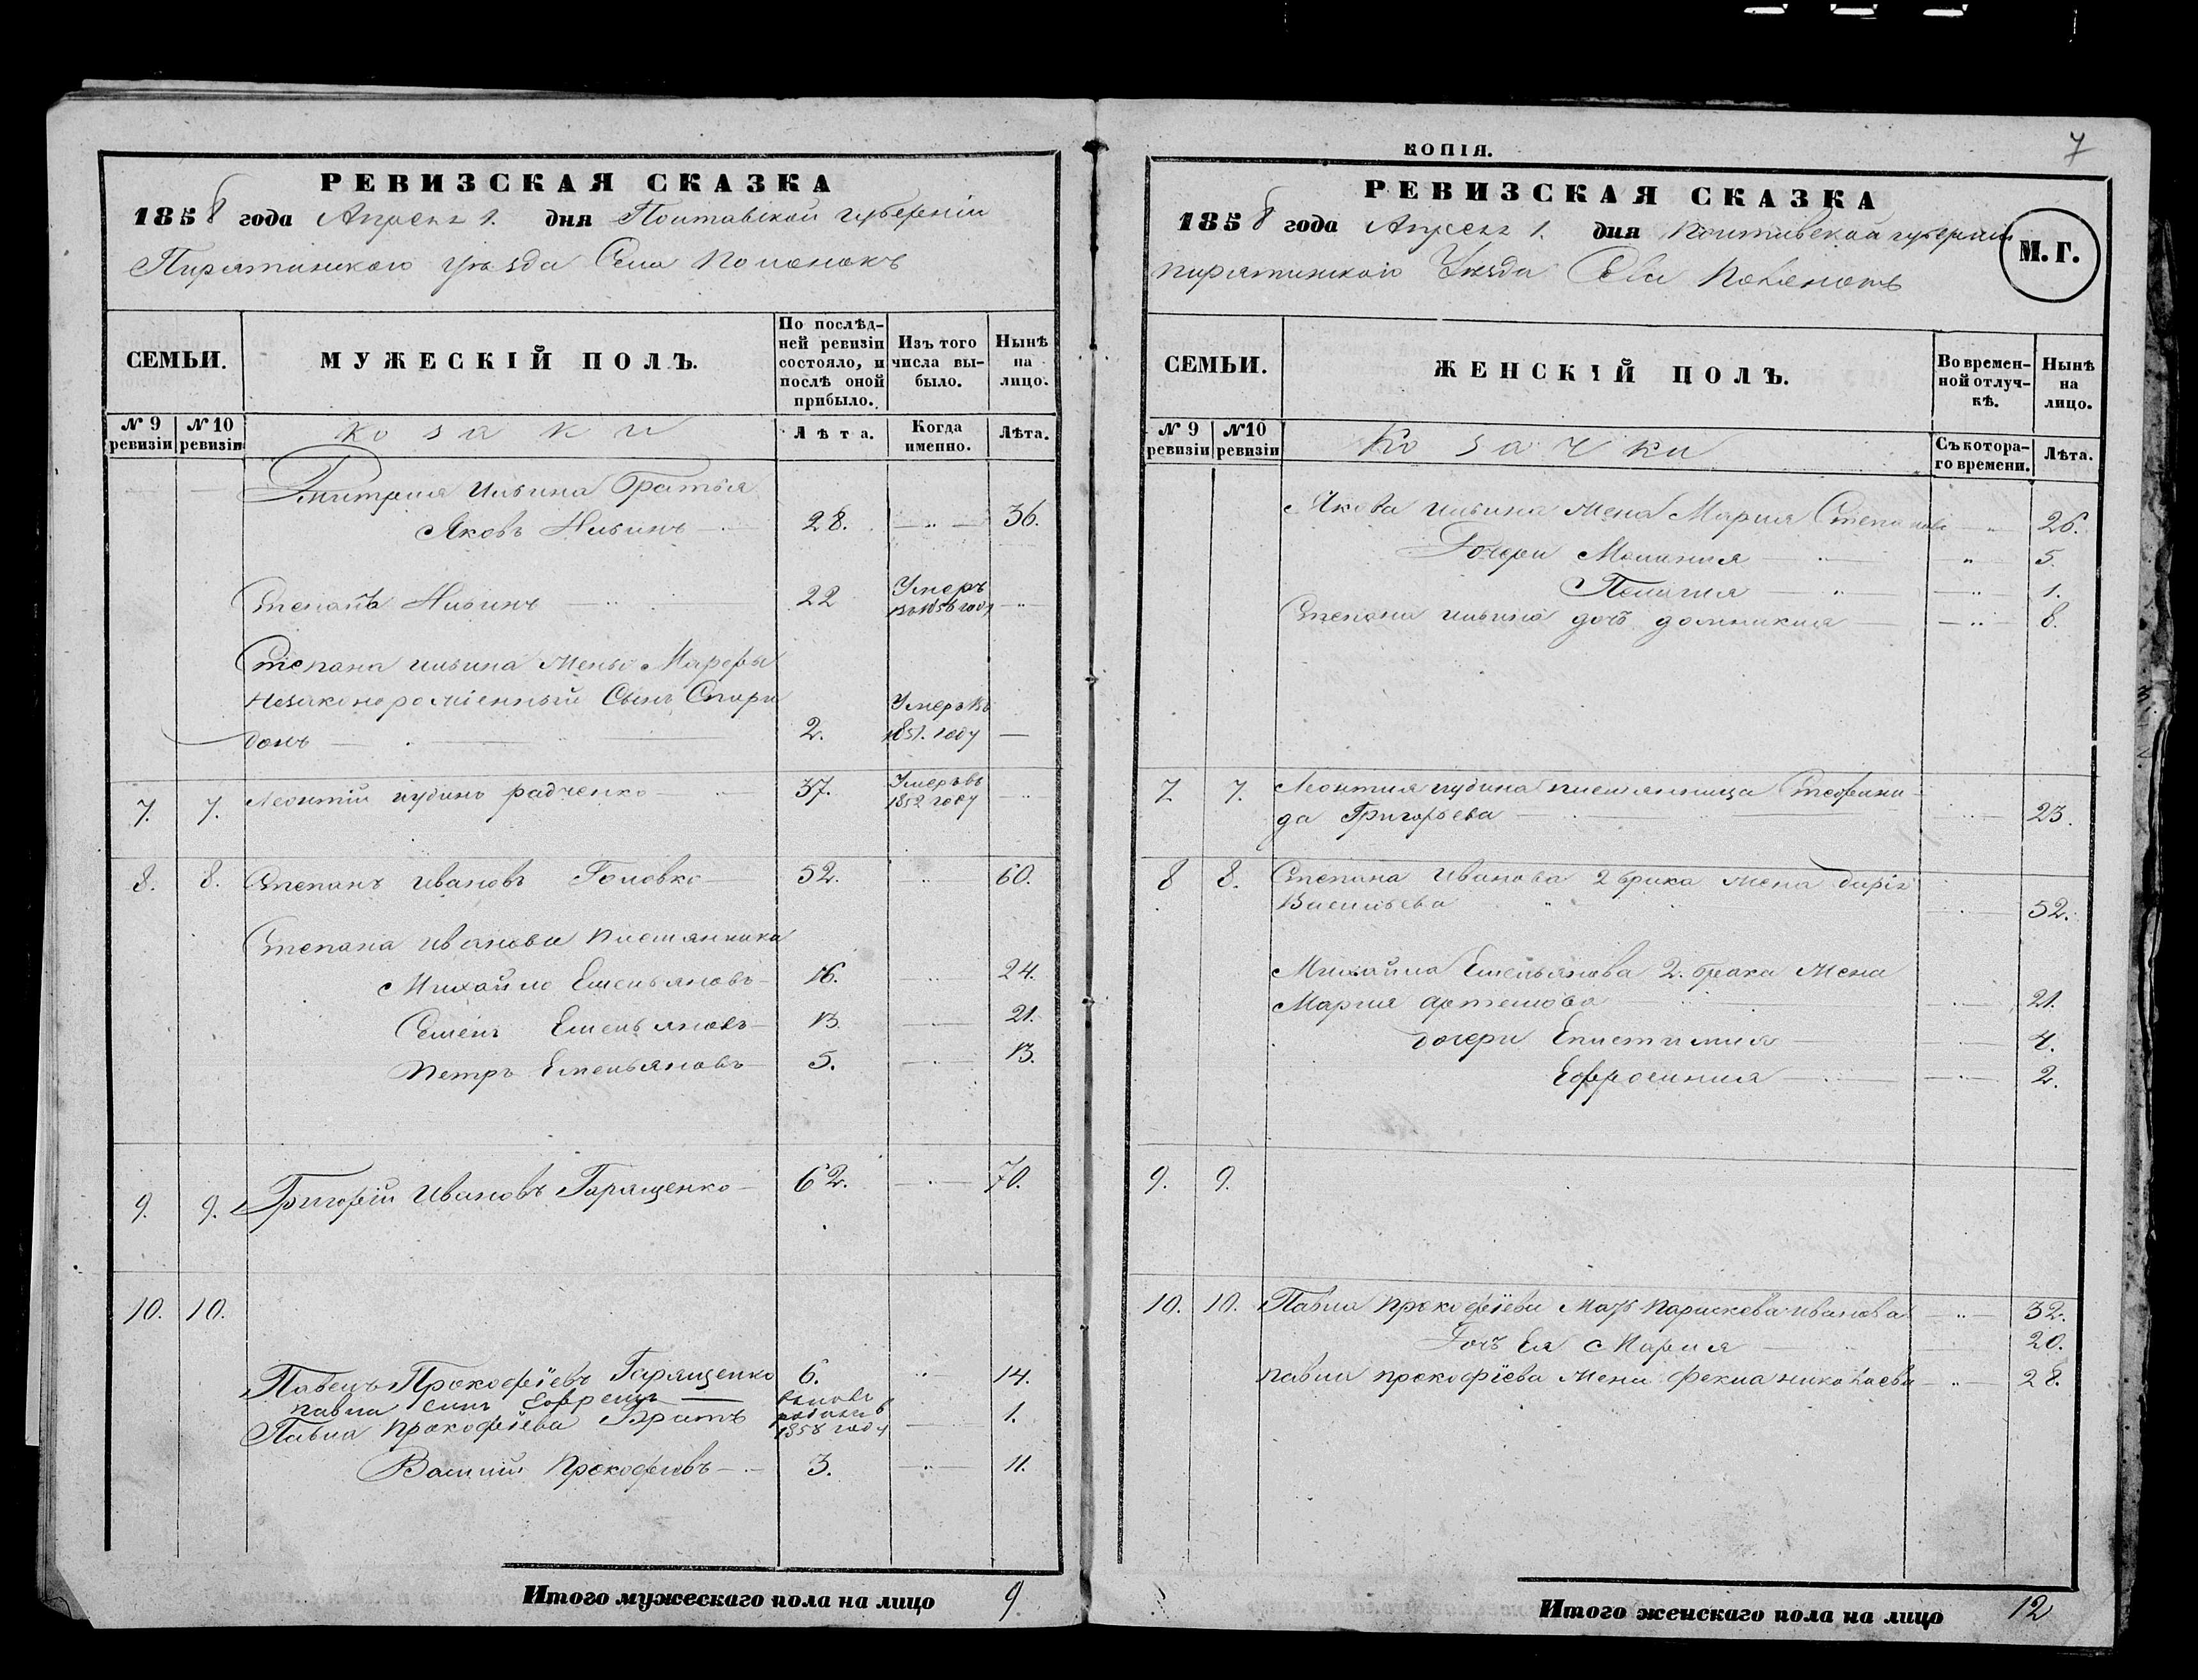 РЕВИЗСКАЯ СКАЗКА
1858 года Апреля 1. дня Полтавской губерніи
Пирятинскаго уезда Села Полонокъ
СЕМЬИ.
МУЖЕСКІЙ ПОЛЪ.
По послѣд-
ней ревизіи
состояло, и
послѣ оной
прибыло.
Изъ того
числа вы-
было.
Нынѣ
на
лицо.
№ 9
ревизіи
№ 10
ревизіи
козаки
Лѣта.
Когда
именно.
Лѣта.
Дмитрия Ильина Братья
Яковъ Ильинъ 28. 36.
Степанъ Ильинъ 22 Умеръ
въ 1856 году
Степана ильина жены Марфы
Незаконорожденный Сынъ Спири
донъ 2. Умеръ въ
1851. году
7. 7. Леонтий иудинъ радченко 37. Умеръ въ
1852 году
8. 8. Степанъ ивановъ Головко 52. 60.
Степана иванова племянники
Михайло Емельяновъ 16. 24.
Семенъ Емельяновъ 13. 21.
Петръ Емельяновъ 5. 13.
9. 9. Григорій Ивановъ Гаращенко 62. 70.
10. 10.
Павелъ Прокофіевъ Гаращенко 6. 14.
павла сынъ Ефремъ вновь
родился в
1858 году 1.
Павла Прокофіева Братъ
Василий Прокофиевъ 3. 11.
Итого мужескаго пола на лицо 9
КОПІЯ.
7
РЕВИЗСКАЯ СКАЗКА
1858 года Апреля 1. дня Полтавской губерніи
пирятинскаго Уезда Села Полонокъ
М. Г.
СЕМЬИ.
ЖЕНСКІЙ ПОЛЪ.
Во времен-
ной отлуч-
кѣ.
Нынѣ
на
лицо.
№ 9
ревизіи
№10
ревизіи
Козачки
Съ котора-
го времени.
Лѣта.
Якова ильина жена Мария Степанова 26.
Дочери Мелания 5.
Пелагия 1.
Степана ильина дочь домникия 8.
7. 7. Леонтия иудина племянница Стефани-
да Григорьева 23.
8 8. Степана Иванова 2 брака жена дарія
Васильева 52.
Михайла Емельянова 2. брака жена
Мария артемова 21.
дочери Епистимия 4.
Ефросиния 2.
9. 9.
10. 10. Павла прокофіева Мать парискева иванова 32.
Дочь Ея Мария 20.
павла прокофіева жена фекла николаева 28.
Итого женскаго пола на лицо 12